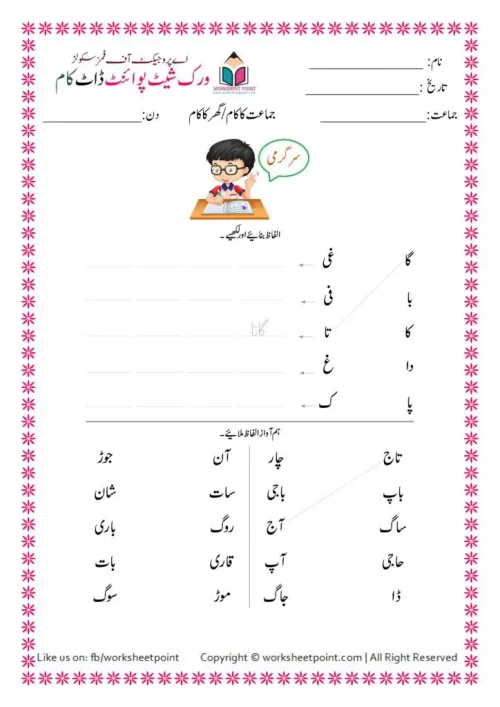 نام:
اے پروجیکٹ آف فمز سکولز
ورک شیٹ پوائنٹ ڈاٹ کام
WORKSHEET POINT
تاریخ :
جماعت: جماعت کا کام/گھر کا کام دن:
سرگرمی
الفاظ بنائیے اور لکھیے۔
گا غی
با فی
کا تا گاتا
دا غ
پا ک
ہم آواز الفاظ ملائیے۔
تاج چار آن جوڑ
باپ باجی سات شان
ساگ آج روگ باری
حاجی آپ قاری بات
ڈا جاگ موڑ سوگ
Like us on: fb/worksheetpoint Copyright © worksheetpoint.com | All Right Reserved